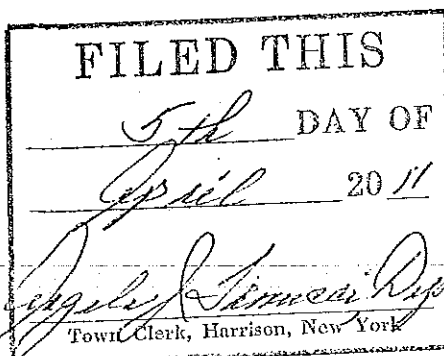 FILED THIS
5th DAY OF
April 20 11
Dep
Town Clerk, Harrison, New York